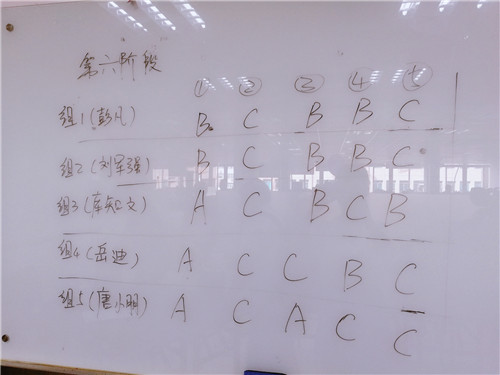 第六阶段
① ② ③ ④ ⑤
组1(彭凡) B C B B C
组2(刘军强) B C B B C
组3(库知文) A C B C B
组4(岳迪) A C C B C
组5(唐小明) A C A C C